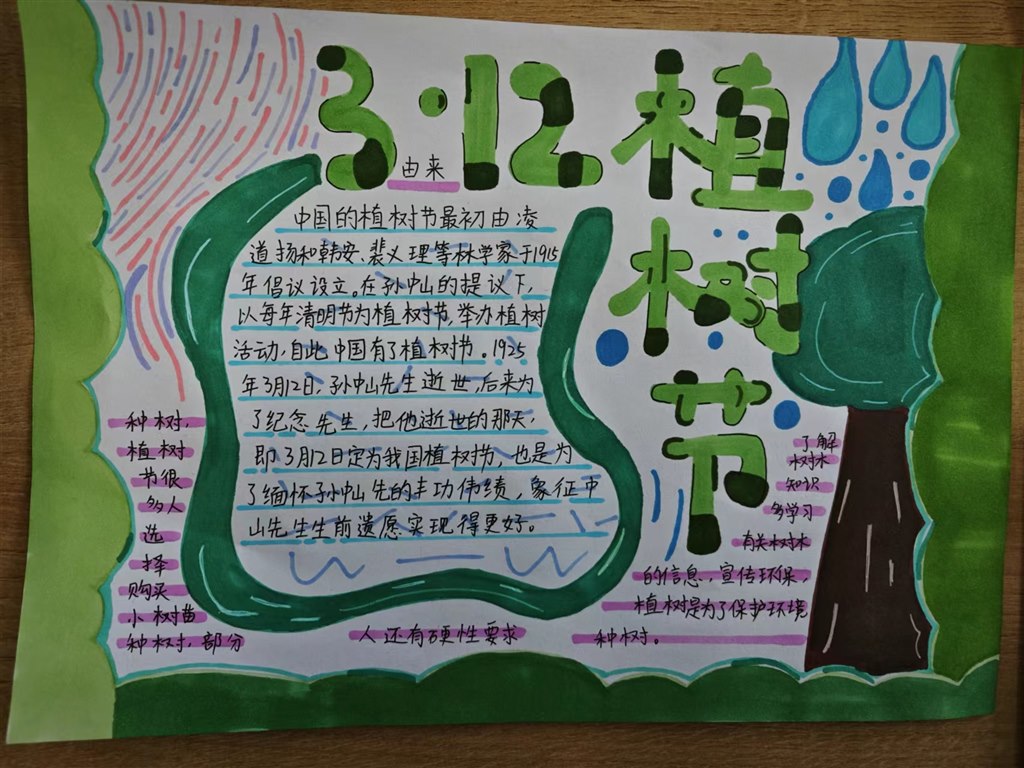 3·12 植
树
节
由来
中国的植树节最初由凌
道扬和韩安、裴义理等林学家于1915
年倡议设立。在孙中山的提议下,
以每年清明节为植树节,举办植树
活动,自此中国有了植树节。1925
年3月12日,孙中山先生逝世,后来为
了纪念先生,把他逝世的那天,
即3月12日定为我国植树节,也是为
了缅怀孙中山先的丰功伟绩,象征中
山先生生前遗愿实现得更好。
种树,
植树
节很
多人
选
择
购买
小树苗
种树,部分
人还有硬性要求
种树。
了解
树木
知识
多学习
有关树木
的信息,宣传环保,
植树是为了保护环境